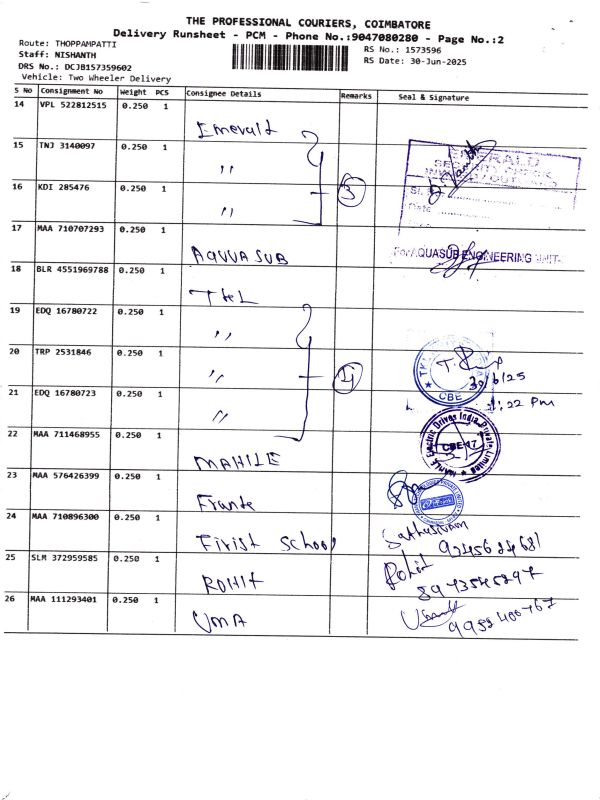 THE PROFESSIONAL COURIERS, COIMBATORE
Delivery Runsheet - PCM - Phone No.:9047080280 - Page No.:2
Route: THOPPAMPATTI
Staff: NISHANTH
DRS No.: DCJB157359602
Vehicle: Two Wheeler Delivery
RS No.: 1573596
RS Date: 30-Jun-2025
S No Consignment No Weight PCS Consignee Details Remarks Seal & Signature
14 VPL 522812515 0.250 1 Emerald
15 TNJ 3140097 0.250 1 ,,
16 KDI 285476 0.250 1 ,,
3
EMERALD
Date
17 MAA 710707293 0.250 1 AQUUASUB
For AQUASUB ENGINEERING UNIT-
18 BLR 4551969788 0.250 1 TkeL
19 EDQ 16780722 0.250 1 ,,
20 TRP 2531846 0.250 1 ,,
21 EDQ 16780723 0.250 1 ,,
4
30/6/25
1:22 Pm
CBE
22 MAA 711468955 0.250 1 MAHILE
MAHLE Electric Drives India Private Limited
CBE-17
23 MAA 576426399 0.250 1
24 MAA 710896300 0.250 1 Fixist School Sathusivam
9245624681
25 SLM 372959585 0.250 1 ROHIT Rohit
8973545297
26 MAA 111293401 0.250 1 UMA
9952400767